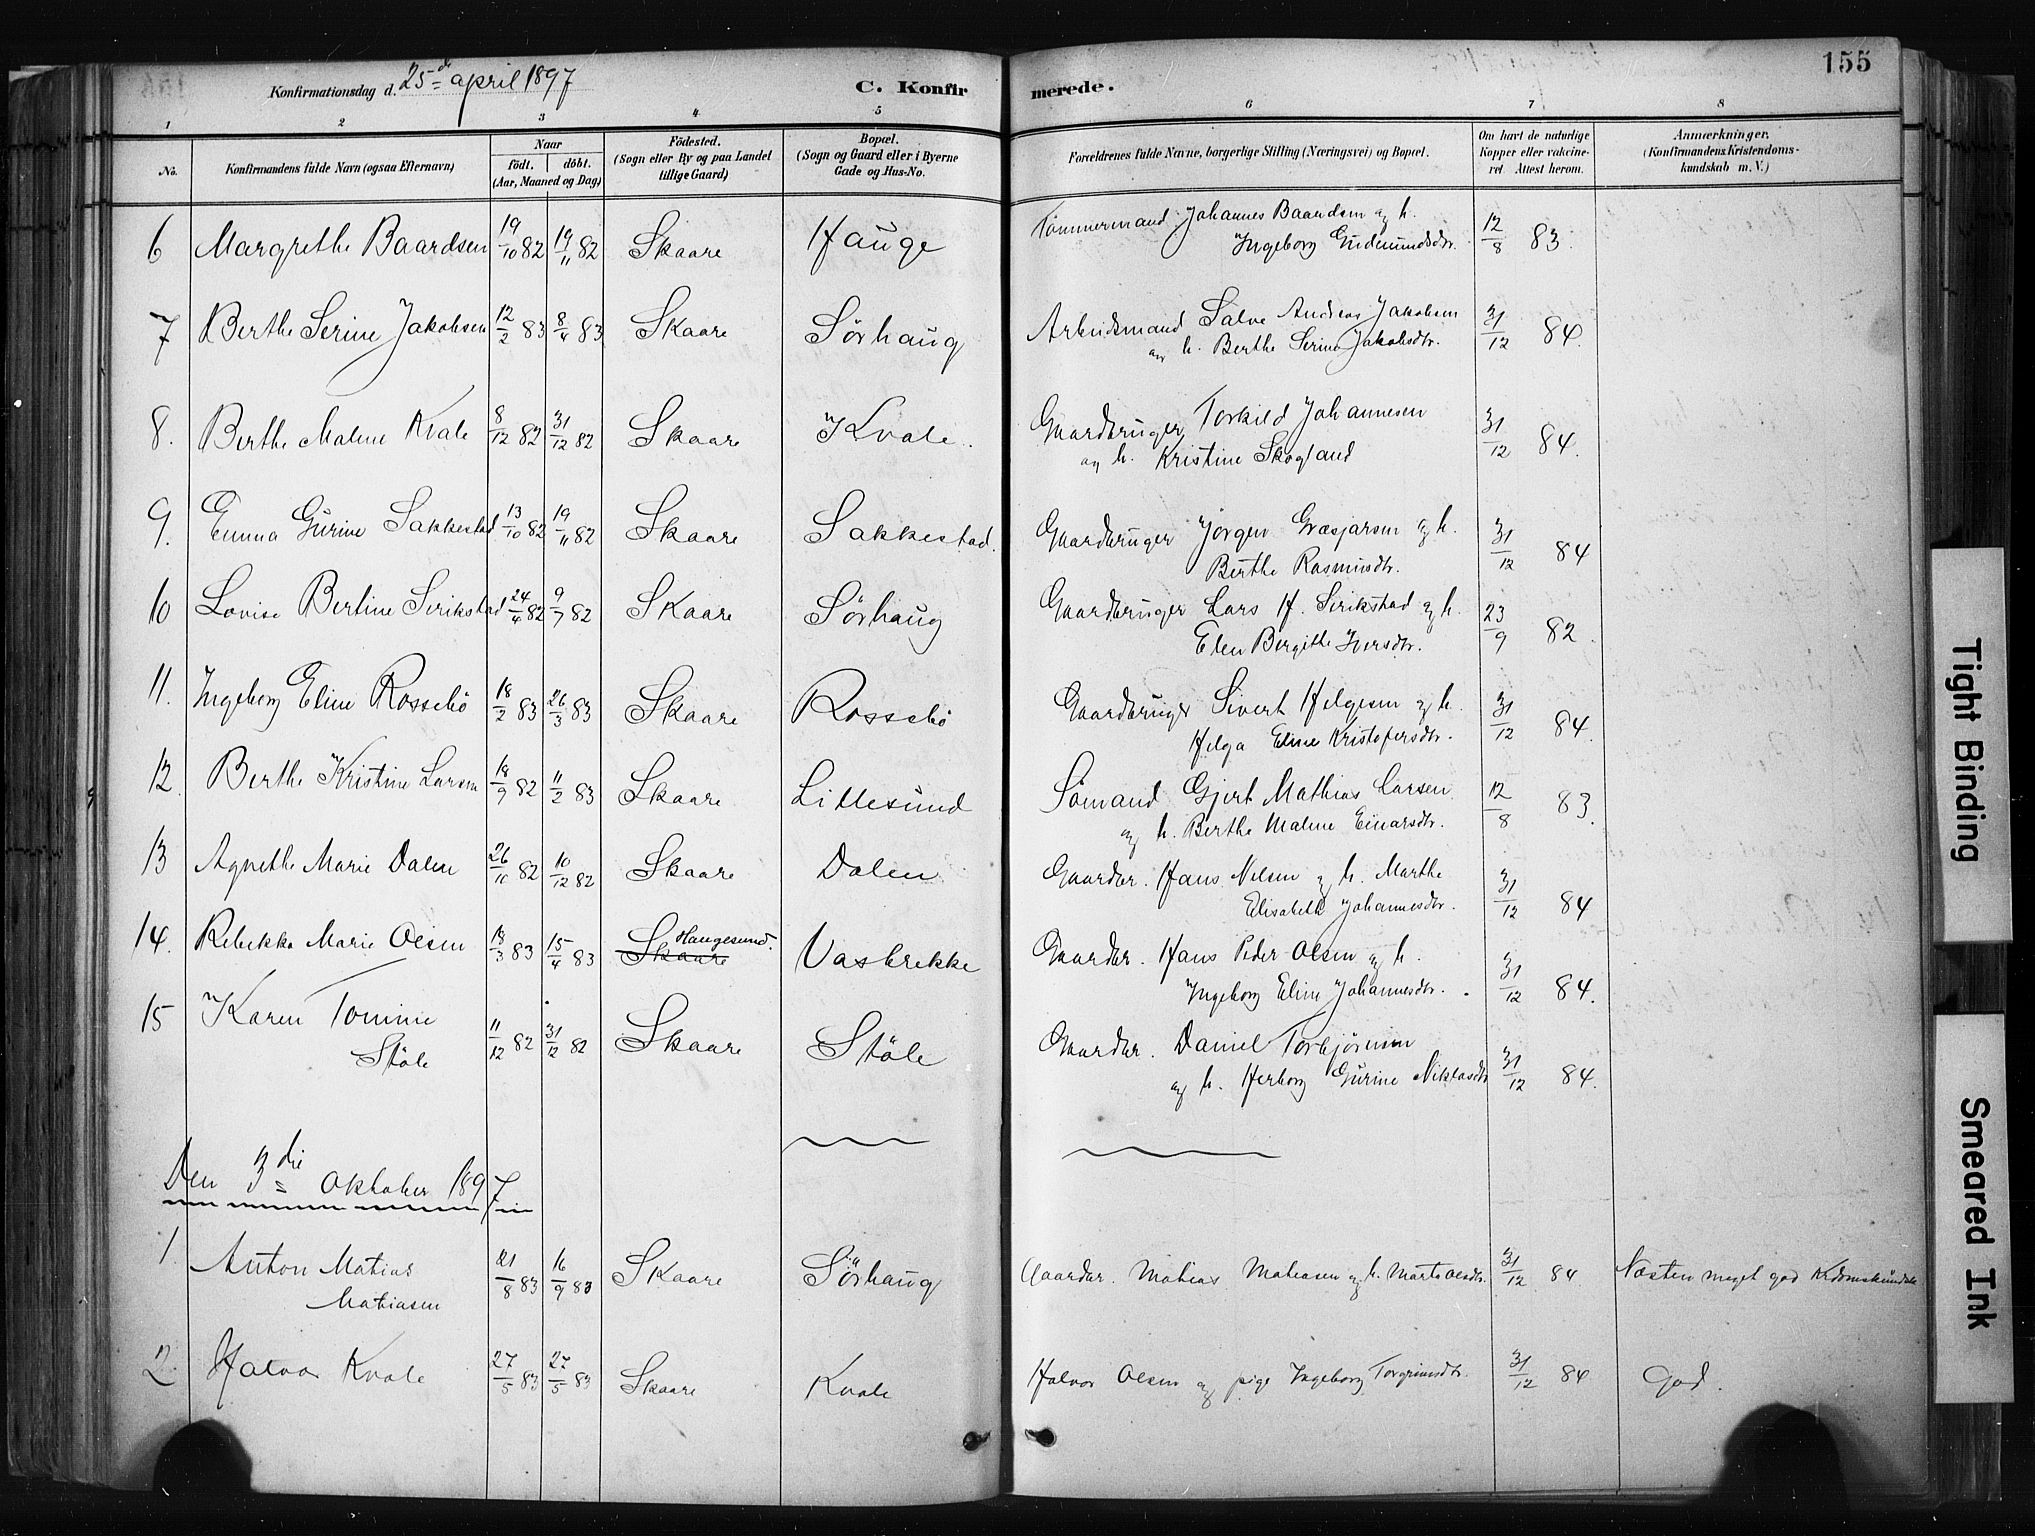 155
Konfirmationsdag d. 25de april 1897
C. Konfirmerede.
1 2 3 4 5 6 7 8
No.
Konfirmandens fulde Navn (ogsaa Efternavn)
Naar
födt. döbt.
(Aar, Maaned og Dag)
Födested.
(Sogn eller By og paa Landet
tillige Gaard)
Bopæl.
(Sogn og Gaard eller i Byerne
Gade og Hus-No.
Forældrenes fulde Navne, borgerlige Stilling (Næringsvei) og Bopæl.
Om havt de naturlige
Kopper eller vakcine-
ret. Attest herom.
Anmærkninger,
(Konfirmandens Kristendoms-
kundskab m. V.)
6 Margrethe Baardsen 19/10 82 19/11 82 Skaare Hauge Tømmermand Johannes Baardsen og h. 12/8 83.
Ingeborg Gudmundsdtr.
7 Berthe Serine Jakobsen 12/2 83 8/4 83 Skaare Sörhaug Arbeidsmand Salve Andreas Jakobsen 31/12 84.
og h. Berthe Serine Jakobsdtr.
8. Berthe Maline Kvale 8/12 82 31/12 82 Skaare Kvale. Gaardbruger Torkild Johannesen 31/12 84.
og h. Kristine Skogland
9. Emma Gurine Sakkestad 13/10 82 19/11 82 Skaare Sakkestad. Gaardbruger Jørgen Græsjarsen og h. 31/12 84
Berthe Rasmusdtr.
10 Lovise Bertine Serikstad 24/4 82 9/7 82 Skaare Sörhaug Gaardbruger Lars H. Serikstad og h. 23/9 82.
Elen Bergithe Iversdtr.
11. Ingeborg Eline Rossebö 18/2 83 26/3 83 Skaare Rossebö Gaardbruger Sivert Helgesen og h. 31/12 84.
Helga Eline Kristofersdtr.
12. Berthe Kristine Larsen 18/9 82 11/2 83 Skaare Lillesund Sømand Gjert Mathias Larsen 12/8 83.
og h. Berthe Maline Einarsdtr.
13 Agnethe Marie Dalen 26/10 82 10/12 82 Skaare Dalen Gaardbr. Hans Nilsen og h. Marthe 31/12 84
Elisabeth Johannesdtr.
14. Rebekka Marie Olsen 13/3 83 15/4 83 Skaare Haugesund. Vasbrekke Gaardbr. Hans Peder Olsen og h. 31/12 84.
Ingeborg Eline Johannesdtr.
15 Karen Tomine 11/12 82 31/12 82 Skaare Stöle Gaardbr. Daniel Torbjörnsen 31/12 84.
Stöle og h. Herborg Gurine Niklasdtr
Den 3die Oktober 1897
1. Anton Matias 21/8 83 16/9 83 Skaare Sörhaug Gaardbr. Matias Matiasen og h. Marta Olsdtr. 31/12 84 Næsten meget god Kr.domskundsk.
Matiasen
2. Halvor Kvale 27/5 83 27/5 83 Skaare Kvale Halvor Olsen og pige Ingeborg Torgrimsdtr. 31/12 84 God.
Tight Binding
Smeared Ink